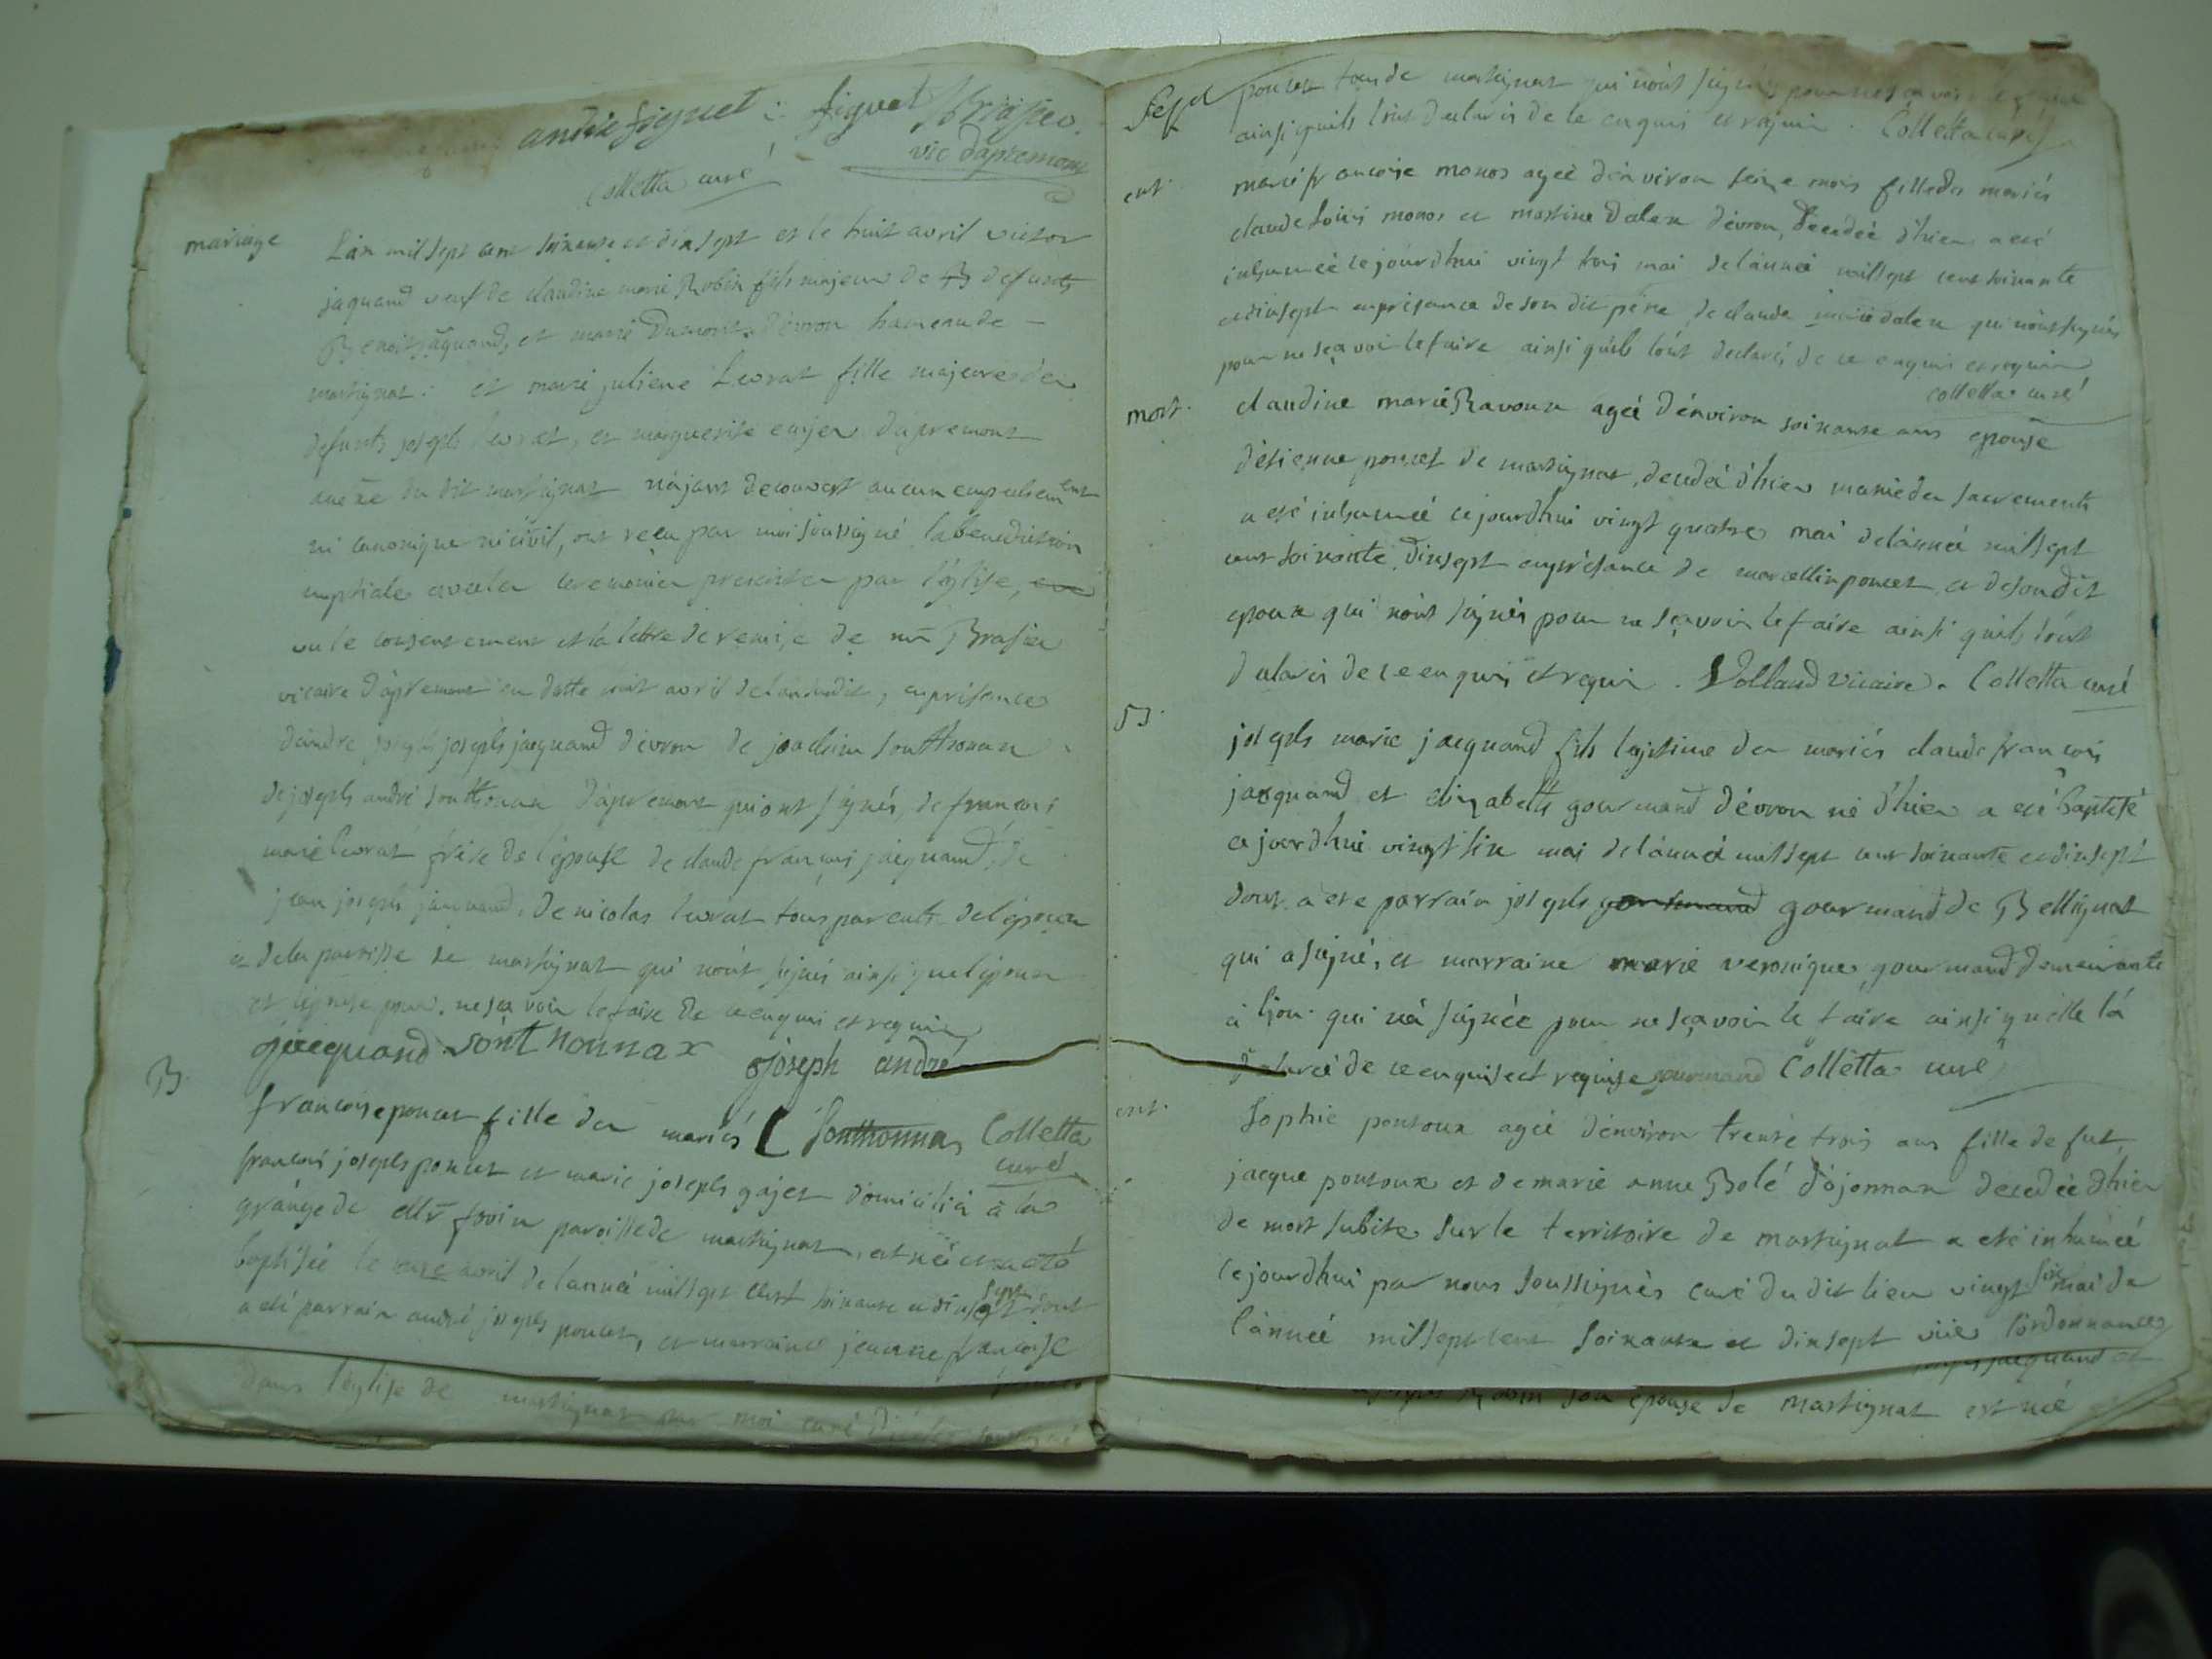 andré figuet : figuet Brasier
vic d'apremont
Colletta curé
mariage
L'an mil sept cent soixante et dix sept et le huit avril victor
jaquand veuf de claudine marie Robin fils majeur de B defunts
Benoit jaquand, et marie Dumont d'évron hameau de
martignat : et marie juliene Levrat fille majeure des
defunts joseph levrat, et marguerite d'apremont
du dit martignat n'ajant decouvert aucun empechement
ni canonique ni civil, ont recu par moi soussigné la benediction
nuptiale avec les ceremonies prescrites par l'église,
vu le consentement et la lettre de remise de mr Brasier
vicaire d'apremont en datte avril de l'an dit, en présence
d'andre joseph jacquand d'évron de joachim sonthonax
de joseph andré sonthonax d'apremont qui ont signés, de françois
marie levrat frère de l'épouse de claude françois jacquand, de
jean joseph jacquand, de nicolas levrat tous parents de l'époux
et de la paroisse de martignat qui n'ont signés ainsi que l'époux
et l'épouse pour ne sça voir le faire de ce enquis et requis
jacquand sont honnax joseph andré
Sonthonnax Colletta
curé
B
francoise poncet fille des mariés
francois joseph poncet et marie joseph gajet domiciliés à la
grange de mr paroisse de martignat, est née et a été
baptisée le onze avril de l'année mil sept cent soixante et dix sept dont
a été parrain andré joseph poncet, et marraine jeanne françoise
dans l'église de martignat par moi curé
poncet tous de martignat qui n'ont signés pour ne sça voir le faire
ainsi quils l'ont declarés de ce enquis et requis. Colletta curé
ent.
marie francoise monos agée d'environ seize mois fille des mariés
claude louis monos et martine dalex d'évron, decedée d'hier a été
inhumée ce jourdhui vingt trois mai de l'année mil sept cent soixante
et dix sept en présance de son dit père, de claude marie dalex qui n'ont signés
pour ne sça voir le faire ainsi quils l'ont declarés de ce enquis et requis
colletta curé
mort.
claudine marie Ravoux agée d'environ soixante ans epouse
d'étienne poncet de martignat, decedée d'hier munie des sacrements
a été inhumée ce jourdhui vingt quatre mai de l'année mil sept
cent soixante dix sept en présance de marcellin poncet, et de son dit
epoux qui n'ont signés pour ne sçavoir le faire ainsi quils l'ont
declarés de ce enquis et requis. Volland vicaire. Colletta curé
B.
joseph marie jacquand fils legitime des mariés claude françois
jacquand et elizabeth gourmand d'évron né d'hier a été baptisé
ce jourdhui vingt six mai de l'année mil sept cent soixante et dix sept
dont a été parrain joseph gourmand gourmand de Bellignat
qui a signé, et marraine marie veronique gourmand demeurante
à lion qui n'a signée pour ne sçavoir le faire ainsi quelle l'a
declarée de ce enquise et requise gourmand Colletta curé
ent.
Sophie ponsoux agée d'environ trente trois ans fille de fut
jacque ponsoux et de marie anne Bolé d'ojonnax decedée d'hier
de mort subite sur le territoire de martignat a été inhumée
ce jourdhui par nous soussignés curé du dit lieu vingt six mai de
l'année mil sept cent soixante et dix sept vue l'ordonnance
jacquand et
Robin son épouse de martignat est née